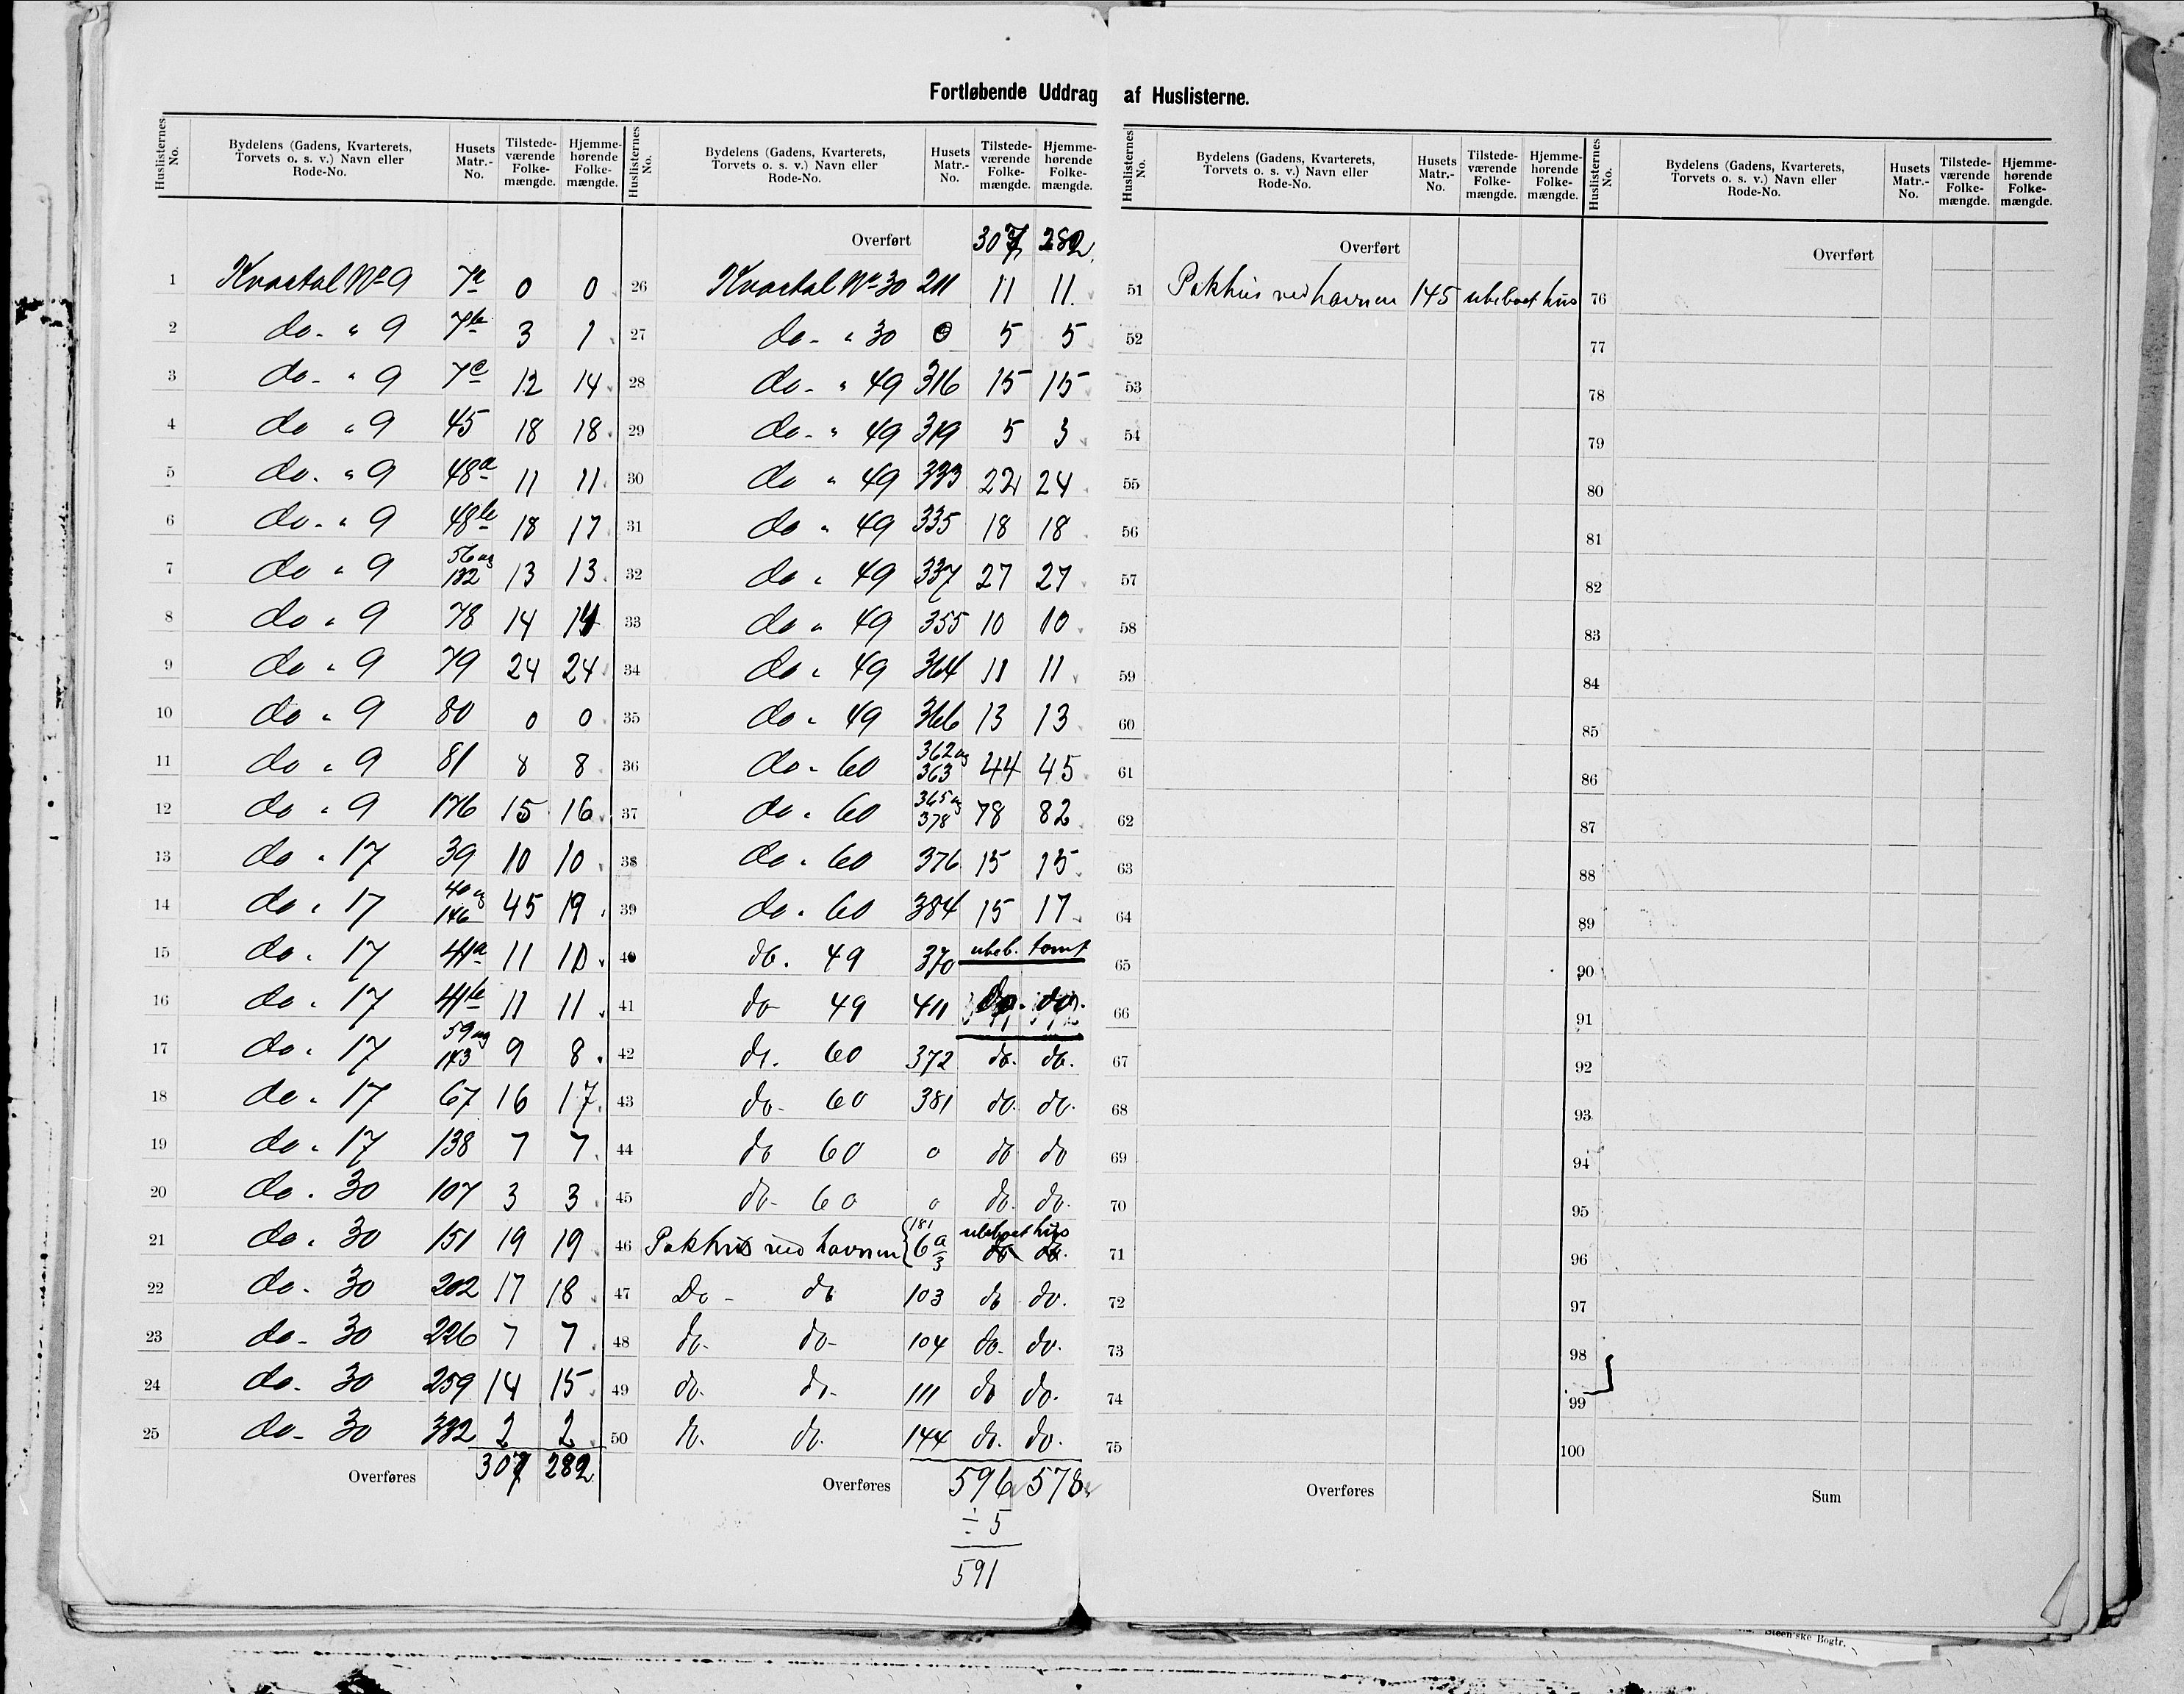 Fortløbende Uddrag af Huslisterne.
Huslisternes No. Bydelens (Gadens, Kvarterets, Torvets o. s. v.) Navn eller Rode-No. Husets Matr.-No. Tilstedeværende Folkemængde. Hjemmehørende Folkemængde.
1 Kvartal No 9 7a 0 0
2 do - " 9 7b 3 1
3 do - " 9 7c 12 14
4 do " 9 45 18 18
5 do. " 9 48a 11 11
6 do - " 9 48b 18 17
7 do " 9 56 og 132 13 13
8 do " 9 78 14 14
9 do " 9 79 24 24
10 do " 9 80 0 0
11 do " 9 81 8 8
12 do " 9 176 15 16
13 do " 17 39 10 10
14 do " 17 40 og 146 45 19
15 do " 17 41a 11 10
16 do " 17 41b 11 11
17 do " 17 59 og 143 9 8
18 do " 17 67 16 17
19 do " 17 138 7 7
20 do " 30 107 3 3
21 do " 30 151 19 19
22 do - 30 202 17 18
23 do - 30 226 7 7
24 do - 30 259 14 15
25 do - 30 332 2 2
Overføres 307 282
Huslisternes No. Bydelens (Gadens, Kvarterets, Torvets o. s. v.) Navn eller Rode-No. Husets Matr.-No. Tilstedeværende Folkemængde. Hjemmehørende Folkemængde.
Overført 307 282
26 Kvartal No 30 211 11 11
27 do - " 30 0 5 5
28 do - " 49 316 15 15
29 do - " 49 319 5 3
30 do " 49 333 22 24
31 do " 49 335 18 18
32 do " 49 337 27 27
33 do " 49 355 10 10
34 do " 49 364 11 11
35 do " 49 366 13 13
36 do - 60 362 og 363 44 45
37 do " 60 365 og 378 78 82
38 do " 60 376 15 15
39 do " 60 384 15 17
40 do. 49 370 ubeb. tomt
41 do 49 411 do. do.
42 do. 60 372 do. do.
43 do - 60 381 do. do.
44 do 60 0 do do
45 do - 60 0 do. do.
46 Pakhus ved havnen { 181 6a 3 ubeboet hus
47 Do - do 103 do do.
48 do. do - 104 do. do.
49 do. do - 111 do do.
50 do. do. 144 do. do.
Overføres 596 578
÷ 5
591
Huslisternes No. Bydelens (Gadens, Kvarterets, Torvets o. s. v.) Navn eller Rode-No. Husets Matr.-No. Tilstedeværende Folkemængde. Hjemmehørende Folkemængde.
Overført
51 Pakhus ved havnen 145 ubeboet hus
52
53
54
55
56
57
58
59
60
61
62
63
64
65
66
67
68
69
70
71
72
73
74
75
Overføres
Huslisternes No. Bydelens (Gadens, Kvarterets, Torvets o. s. v.) Navn eller Rode-No. Husets Matr.-No. Tilstedeværende Folkemængde. Hjemmehørende Folkemængde.
Overført
76
77
78
79
80
81
82
83
84
85
86
87
88
89
90
91
92
93
94
95
96
97
98
99
100
Sum
Steen'ske Bogtr.